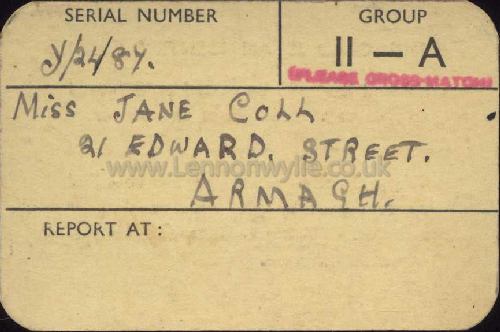 SERIAL NUMBER
Y/24/84.
GROUP
II — A
(PLEASE CROSS-MATCH)
Miss JANE COLL
21 EDWARD. STREET.
www.Lennonwylie.co.uk
ARMAGH.
REPORT AT: